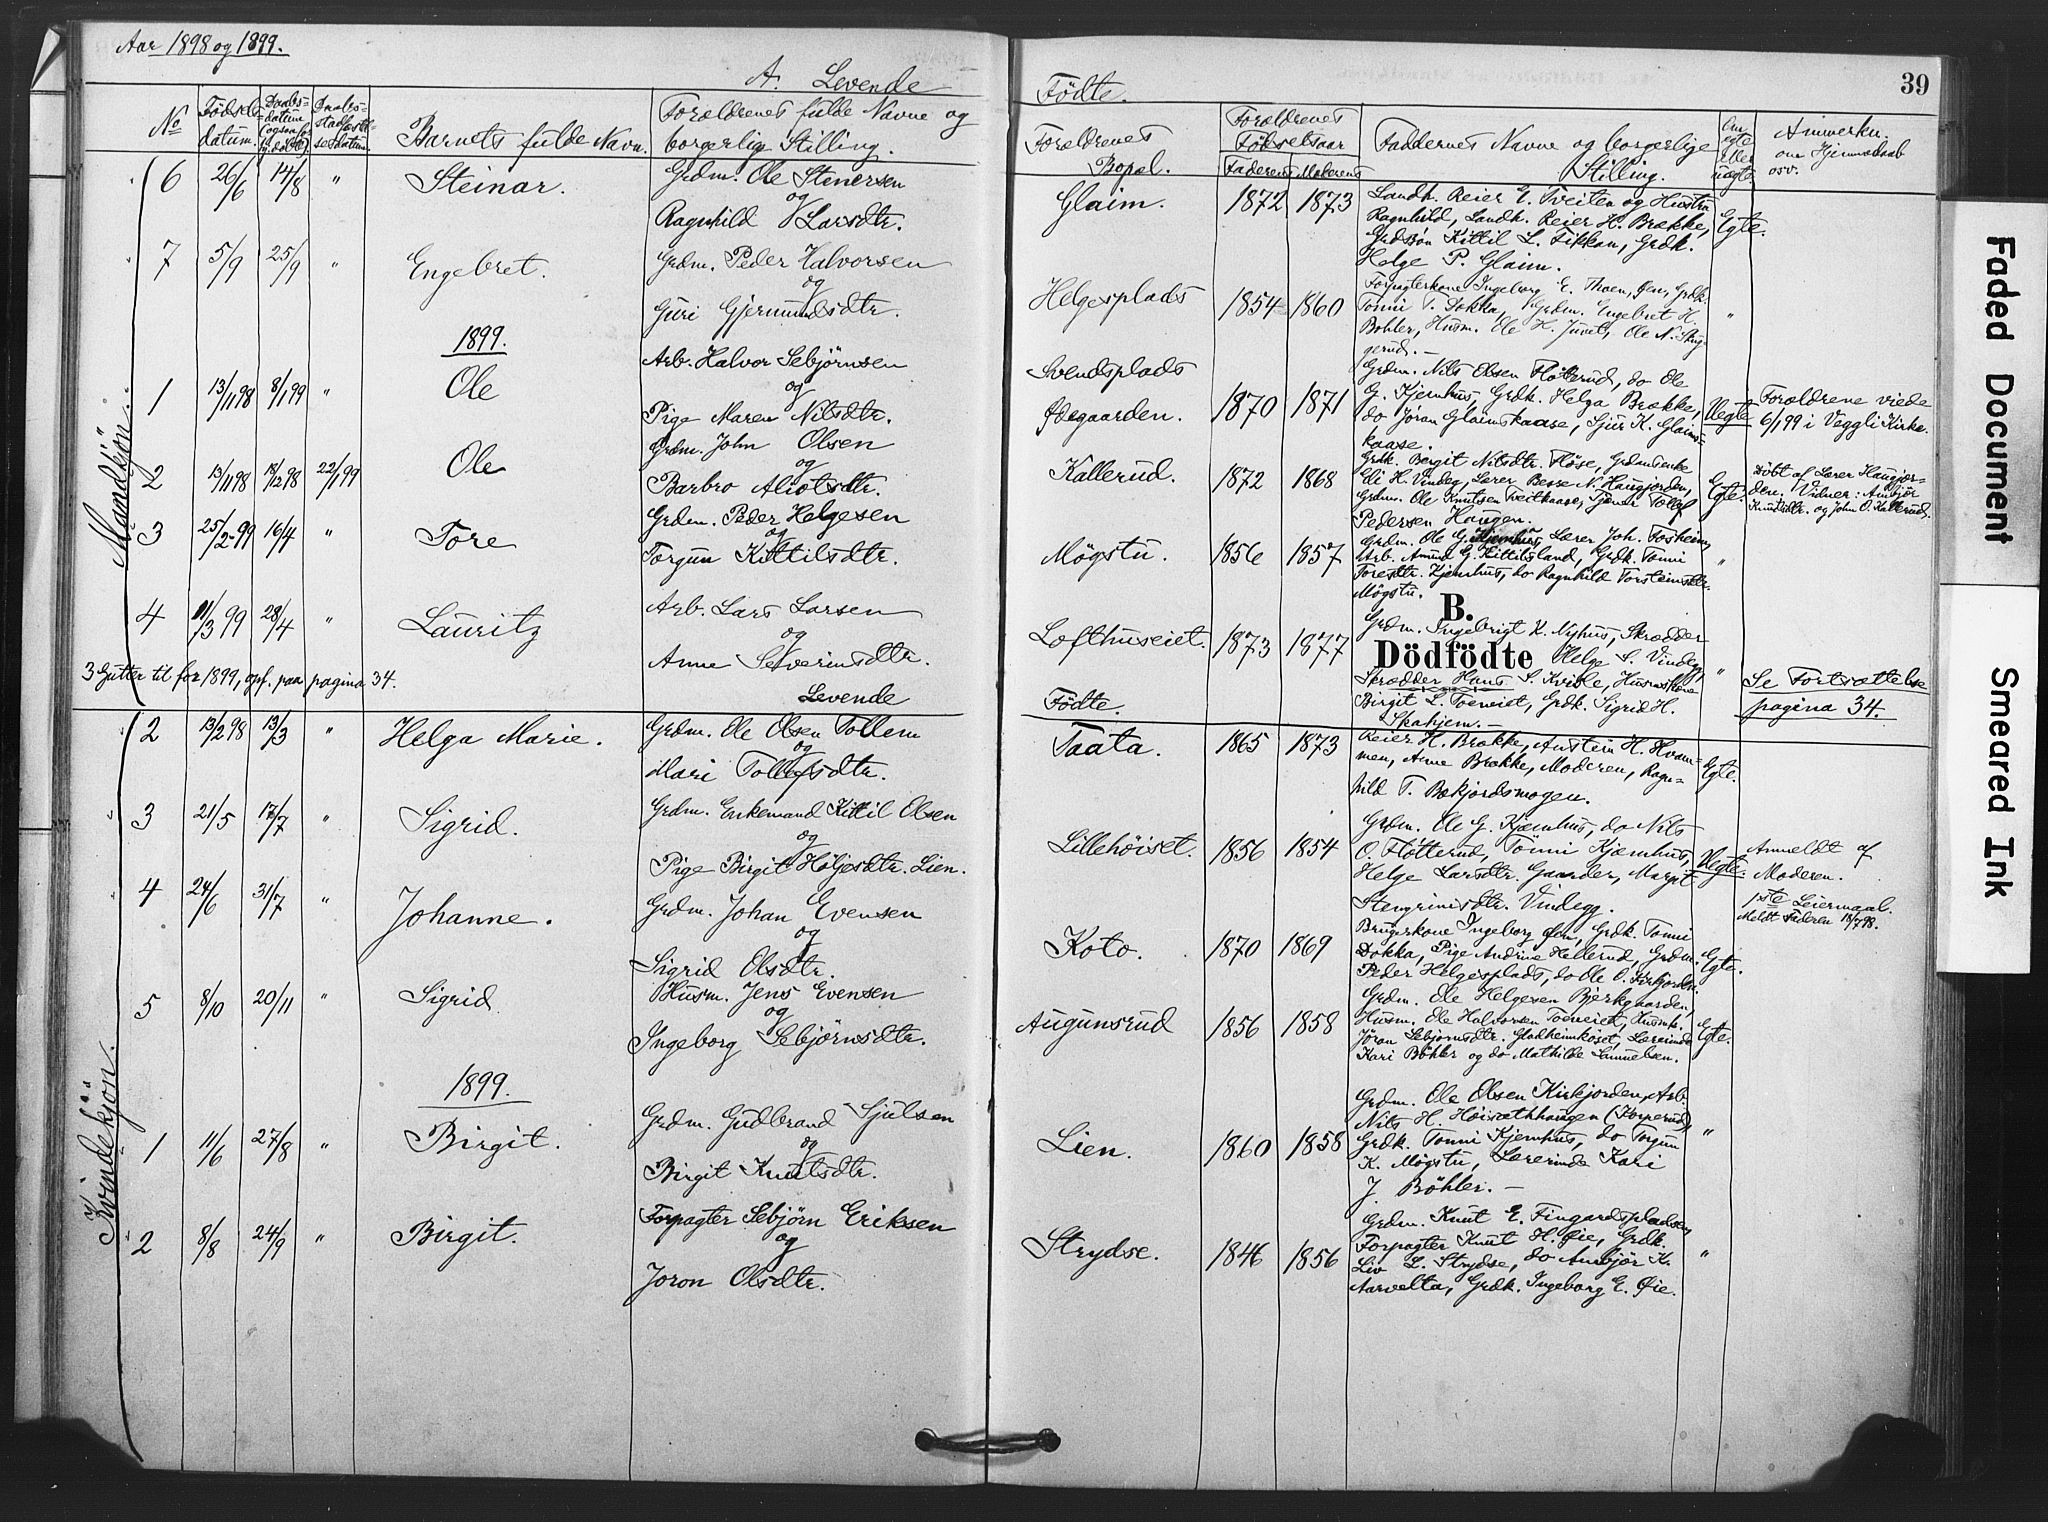 Aar 1898 og 1899.
A. Levende
Födte.
39
No
Födsels-
datum.
Daabs-
datum
(ogsaa for
hj.döbte)
Daabs-
stadfæstel-
sesdatum.
Barnets fulde Navn.
Forældrenes fulde Navne og
borgerlig Stilling.
Forældrenes
Bopæl.
Forældrenes
Födselsaar
Faderens Moderens
Faddernes Navne og borgerlige
Stilling.
Om
ægte
eller
uægte.
Anmerkn.
om Hjemmedaab
osv.
Mandkjön.
6 26/6 14/8 " Steinar.
Grdm. Ole Stenersen
og
Ragnhild Larsdtr.
Glaim. 1872 1873
Landh. Reier E. Tveiten og Hustru
Ragnhild, Landh. Reier H. Brække,
Grdsön Kittil L. Sikkan, Grdk.
Helge P. Glaim.
Egte.
7 5/9 25/9 " Engebret.
Grdm. Peder Halvorsen
og
Guri Gjermundsdtr.
Helgesplads 1854 1860
Forpagterkone Ingeborg E. Thoen, Øen, Grdk.
Tonni T. Dokka, Grdm. Engebret H.
Bøhler, Husm. Ole H. Juvet, Ole N. Skug
gerud. –
"
1899.
1 13/11 98 8/1 99 " Ole
Arb. Halvor Sebjørnsen
og
Pige Maren Nilsdtr.
Svendsplads
Ødegaarden. 1870 1871
Grdm. Nils Olsen Fløtterud, do Ole
G. Kjemhus, Grdk. Helga Brække,
do Jøran Glaimskaase, Sjur K. Glaims-
kaase.
Uegte
Forældrene viede
6/1 99 i Veggli Kirke.
2 13/11 98 18/12 98 22/1 99 Ole
Grdm. John Olsen
og
Barbro Aliotsdtr.
Kallerud. 1872 1868
Grdk. Birgit Nilsdtr. Fløse, Grdmdsenke
Eli H. Vindeg, Lærer Besse N. Haugjorden,
Grdm. Ole Knutsen Tveitkaase, Tjener Tollef
Pedersen Haugen.
Egte.
Döbt af Lærer Haugjor-
den. Vidner: Ambjör
Knutsdtr. og John O. Kallerud.
3 25/2-99 16/4 " Tore
Grdm. Peder Helgesen
og
Torgun Kittilsdtr.
Møgstu. 1856 1857
Grdm. Ole G. Kjemhus, Lærer Joh. Fosheim,
Arb. Amund G. Kittilsland, Grdk. Tonni
Toresdtr. Kjemhus, do Ragnhild Torsteinsdtr.
Møgstu.
"
4 11/3 99 28/4 " Lauritz
Arb. Lars Larsen
og
Anne Severinsdtr.
Lofthuseiet. 1873 1877
B.
Dödfödte
Grdm. Ingebrigt K. Nyhus, Skrædder
Helge S. Vindegg,
Skrædder Hans S. Kvisle, Husmdskone
Birgit L. Toeneiet, Grdk. Sigrid H.
Skahjem. –
"
Se Fortsættelse
pagina 34.
3 Gutter til for 1899, opf. paa pagina 34.
Levende
Födte.
Kvindekjön.
2 13/2 98 13/3 " Helga Marie.
Grdm. Ole Olsen Tollem
og
Mari Tollefsdtr.
Taata. 1865 1873
Reier H. Brække, Austein H. Hvam-
men, Anne Brække, Moderen, Ragn-
hild T. Bekjordsmogen.
Egte.
3 21/5 17/7 " Sigrid.
Grdm. Enkemand Kittil Olsen
og
Pige Birgit Høljesdtr. Lien.
Lillehöiset. 1856 1854
Grdm. Ole G. Kjæmhus, do Nils
O. Fløtterud, Tönni Kjæmhus,
Helge Larsdtr. Gaarder, Margit
Stengrimsdtr. Vindegg.
Uegte.
Anmeldt af
Moderen.
1ste Leiermaal.
Meldt Faderen 18/7 98.
4 24/6 31/7 " Johanne.
Grdm. Johan Evensen
og
Sigrid Olsdtr.
Koto. 1870 1869
Brugerkone Ingeborg Øen, Grdk. Tonni
Dokka, Pige Andrine Hellerud, Grdm.
Peder Helgesplads, do Ole O. Kirkjorden.
Egte.
5 8/10 20/11 " Sigrid
Husm. Jens Evensen
og
Ingeborg Sebjørnsdtr.
Augunsrud 1856 1858
Grdm. Ole Helgesen Bjerkgaarden,
Husm. Ole Halvorsen Toeneiet, Husmk.
Jöran Sebjørnsdtr. Glakheimkåset, Lærerinde
Kari Bøhler og do Mathilde Samuelsen.
Egte.
1899.
1 11/6 27/8 " Birgit.
Grdm. Gudbrand Sjulsen
og
Birgit Knutsdtr.
Lien. 1860 1858
Grdm. Ole Olsen Kirkjorden, Arb.
Nils H. Høisæthhaugen (Korperud),
Grdk. Tonni Kjemhus, do Torgun
K. Møgstu, Lærerinde Kari
J. Bøhler. –
"
2 8/8 24/9 " Birgit.
Forpagter Sebjörn Eriksen
og
Joron Olsdtr.
Strydse. 1846 1856
Grdm. Knut E. Fingardspladsen,
Forpagter Knut H. Øie, Grdk.
Liv L. Strydse, do Ambjör K.
Aarvelta, Grdk. Ingeborg E. Øie.
"
Faded Document
Smeared Ink